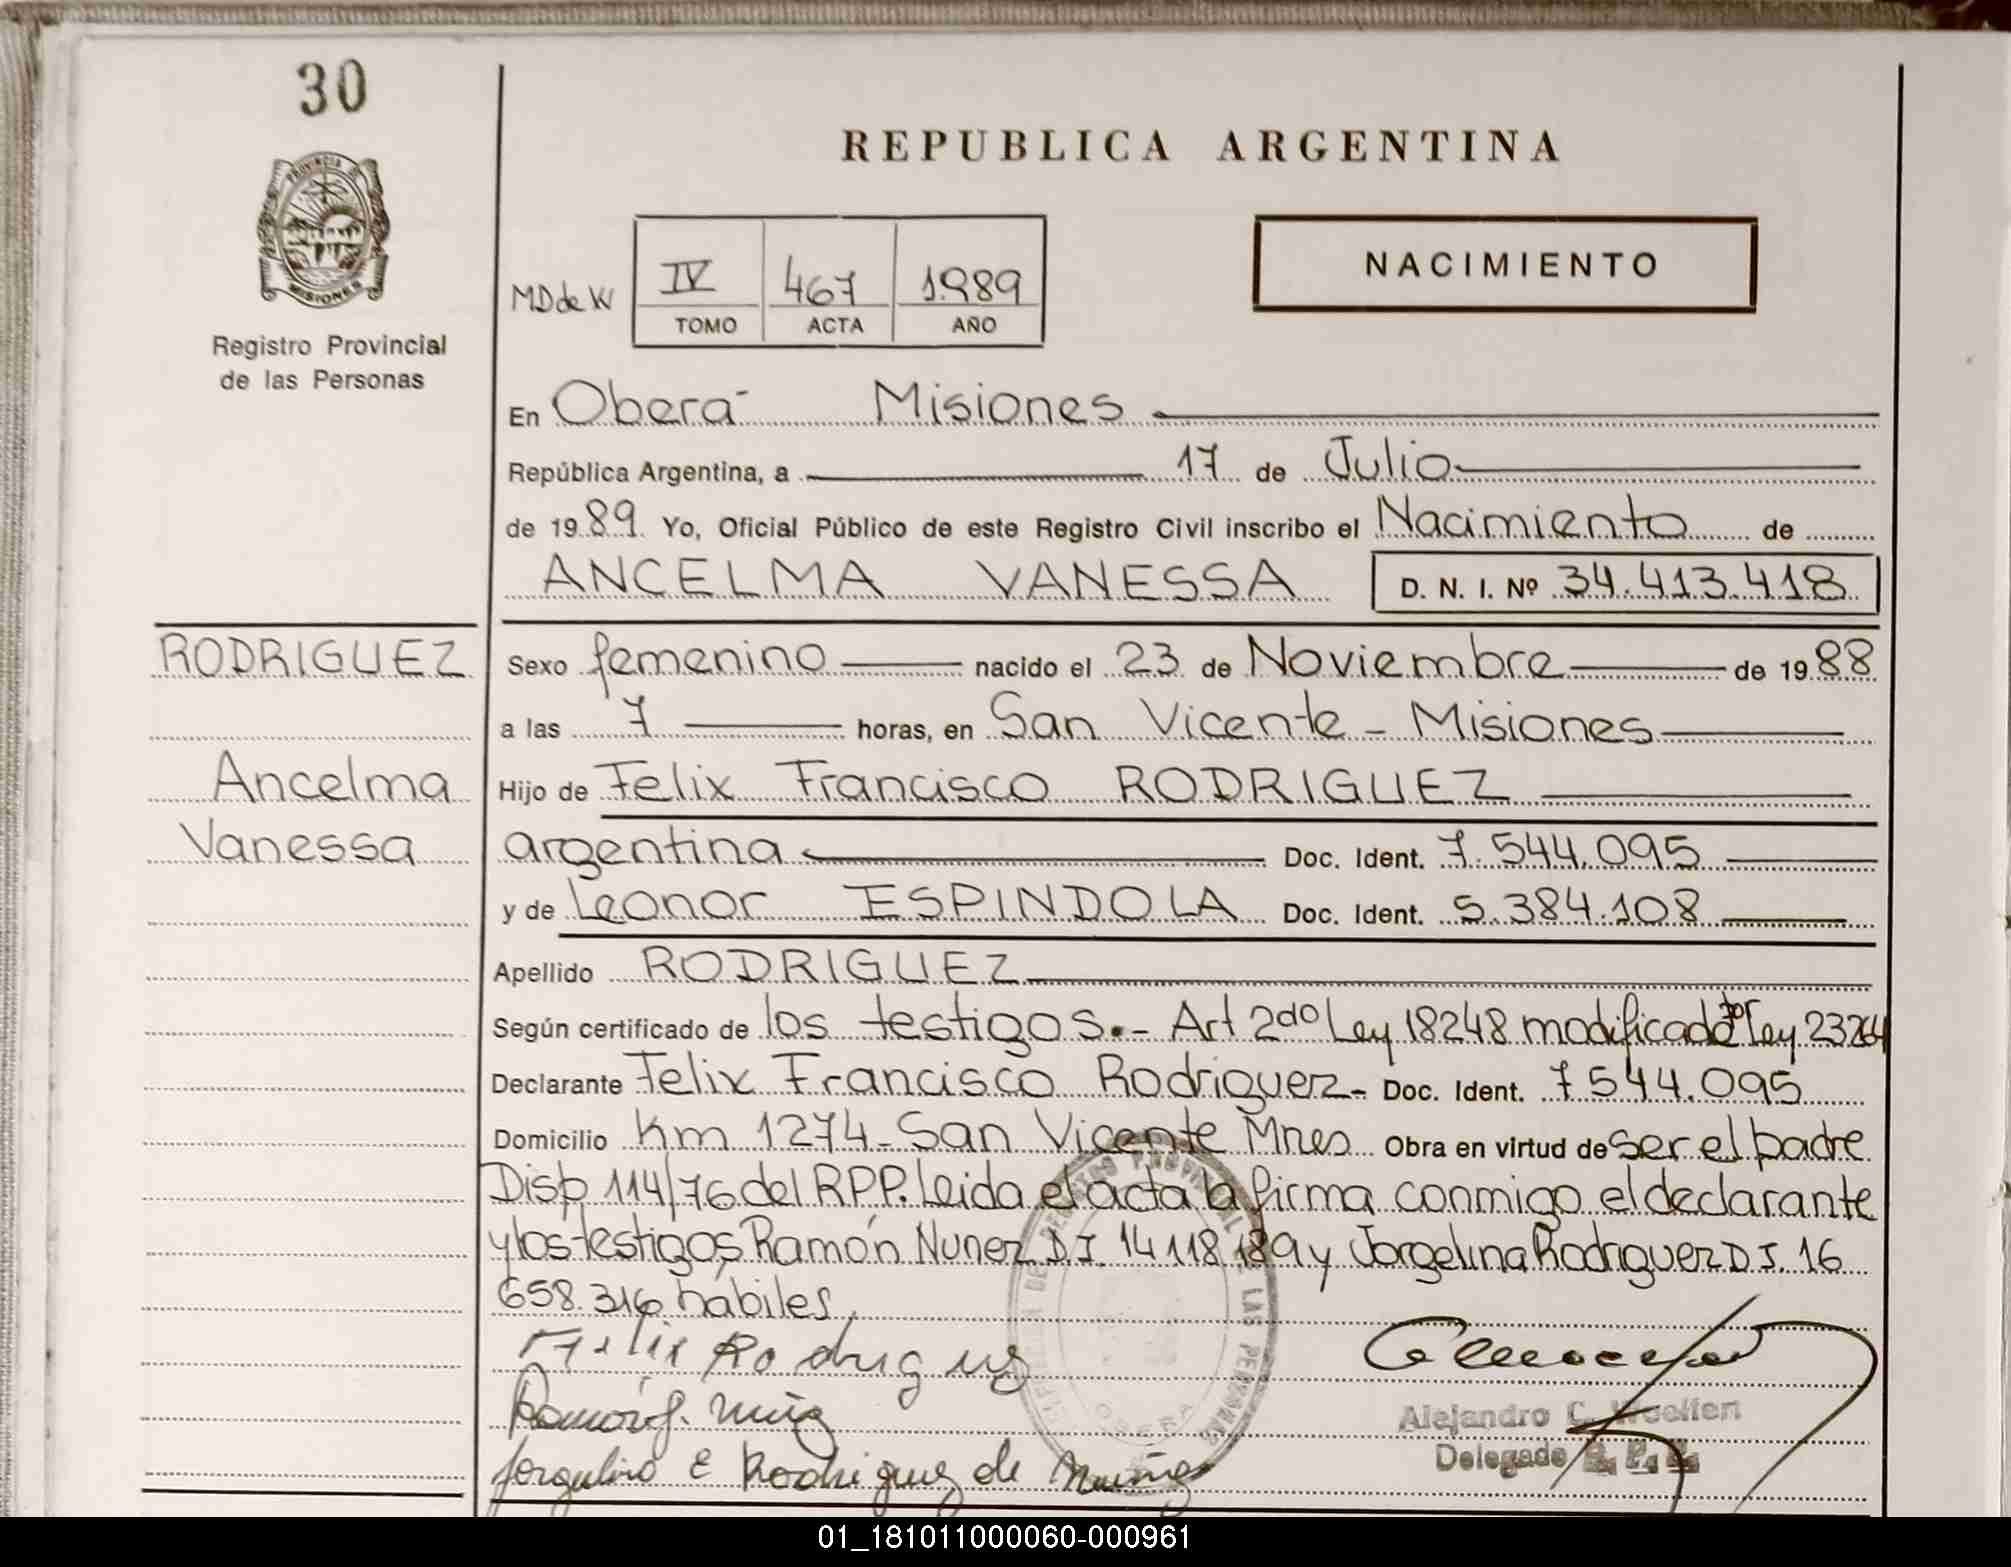 30
REPUBLICA ARGENTINA
PROVINCIA DE
MISIONES
Registro Provincial
de las Personas
MD de K
IV 467 1.989
TOMO ACTA AÑO
NACIMIENTO
En Oberá Misiones
República Argentina, a 17 de Julio
de 1989. Yo, Oficial Público de este Registro Civil inscribo el Nacimiento de
ANCELMA VANESSA D. N. I. Nº 34.413.418
RODRIGUEZ
Sexo femenino nacido el 23 de Noviembre de 1988
a las 7 horas, en San Vicente - Misiones
Ancelma
Hijo de Felix Francisco RODRIGUEZ
Vanessa
argentina Doc. Ident. 7.544.095
y de Leonor ESPINDOLA Doc. Ident. 5.384.108
Apellido RODRIGUEZ
Según certificado de los testigos.- Art 2do Ley 18248 modificado por Ley 23264
Declarante Felix Francisco Rodriguez- Doc. Ident. 7544.095
Domicilio Km 1274-San Vicente Mnes Obra en virtud de ser el padre
Disp 114/76 del RPP. Leida el acta la firma conmigo el declarante
y los testigos Ramón Nunez D.I. 14118189 y Jorgelina Rodriguez D I. 16
658.316 habiles
Felix Rodriguez
Alejandro C.
Delegado
Rodriguez de
OBERA
01_181011000060-000961